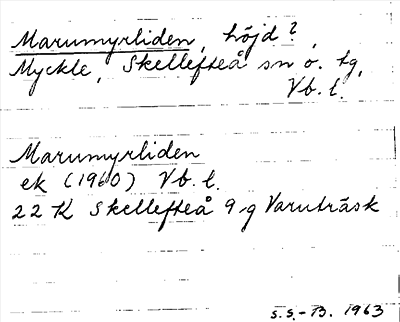 Marumyrliden, höjd?,
Myckle, Skellefteå sn o. tg,
Vb. l.
Marumyrliden
ek (1960) Vb. l.
22 K Skellefteå 9 g Varuträsk
S.S.-B. 1963